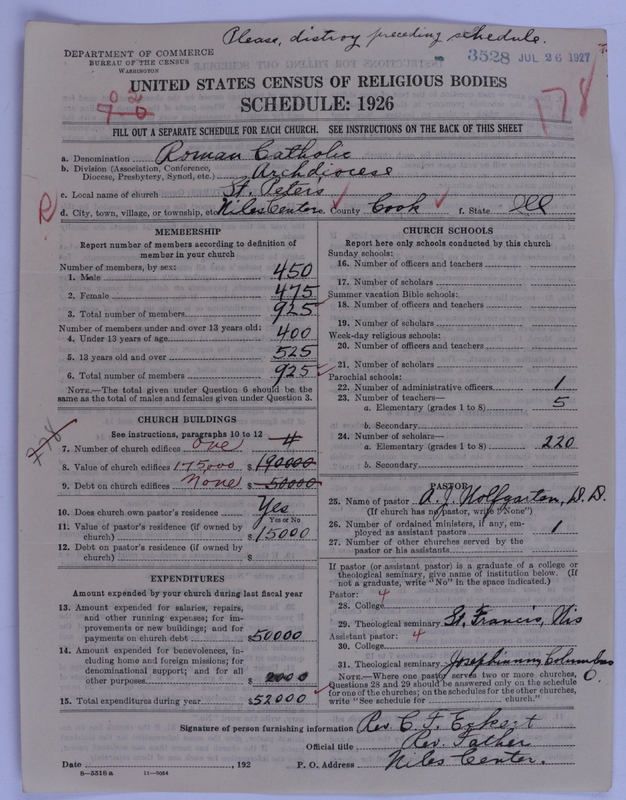 Please, distroy preceding schedule.
3528 JUL 26 1927
DEPARTMENT OF COMMERCE
BUREAU OF THE CENSUS
WASHINGTON
UNITED STATES CENSUS OF RELIGIOUS BODIES
SCHEDULE: 1926
178
FILL OUT A SEPARATE SCHEDULE FOR EACH CHURCH. SEE INSTRUCTIONS ON THE BACK OF THIS SHEET
a. Denomination Roman Catholic
b. Division (Association, Conference, Diocese, Presbytery, Synod, etc.) Archdiocese
c. Local name of church St. Peters
R
d. City, town, village, or township, etc. Niles Center County Cook f. State Ill
MEMBERSHIP
Report number of members according to definition of
member in your church
Number of members, by sex:
1. Male 450
2. Female 475
3. Total number of members 925
Number of members under and over 13 years old:
4. Under 13 years of age 400
5. 13 years old and over 525
6. Total number of members 925
NOTE.—The total given under Question 6 should be the
same as the total of males and females given under Question 3.
778
CHURCH BUILDINGS
See instructions, paragraphs 10 to 12
7. Number of church edifices One 4
8. Value of church edifices 175000 $ 190000
9. Debt on church edifices None $ 50000
10. Does church own pastor's residence Yes
Yes or No
11. Value of pastor's residence (if owned by
church) $ 15000
12. Debt on pastor's residence (if owned by
church) $
EXPENDITURES
Amount expended by your church during last fiscal year
13. Amount expended for salaries, repairs,
and other running expenses; for im-
provements or new buildings; and for
payments on church debt $ 50000
14. Amount expended for benevolences, in-
cluding home and foreign missions; for
denominational support; and for all
other purposes $ 2000
15. Total expenditures during year $ 52000
CHURCH SCHOOLS
Report here only schools conducted by this church
Sunday schools:
16. Number of officers and teachers
17. Number of scholars
Summer vacation Bible schools:
18. Number of officers and teachers
19. Number of scholars
Week-day religious schools:
20. Number of officers and teachers
21. Number of scholars
Parochial schools:
22. Number of administrative officers 1
23. Number of teachers—
a. Elementary (grades 1 to 8) 5
b. Secondary
24. Number of scholars—
a. Elementary (grades 1 to 8) 220
b. Secondary
PASTOR
25. Name of pastor A. J. Wolfgarten, D.D.
(If church has no pastor, write "None")
26. Number of ordained ministers, if any, em-
ployed as assistant pastors 1
27. Number of other churches served by the
pastor or his assistants
If pastor (or assistant pastor) is a graduate of a college or
theological seminary, give name of institution below. (If
not a graduate, write "No" in the space indicated.)
Pastor: 4
28. College
29. Theological seminary St. Francis, Wis
Assistant pastor: 4
30. College
31. Theological seminary Josephinum Columbus O.
NOTE.—Where one pastor serves two or more churches,
Questions 28 and 29 should be answered only on the schedule
for one of the churches; on the schedules for the other churches,
write "See schedule for church."
Signature of person furnishing information Rev C. F. Eckert
Official title Rev. Father
Date , 192 P. O. Address Niles Center.
8—5518 a 11—9054